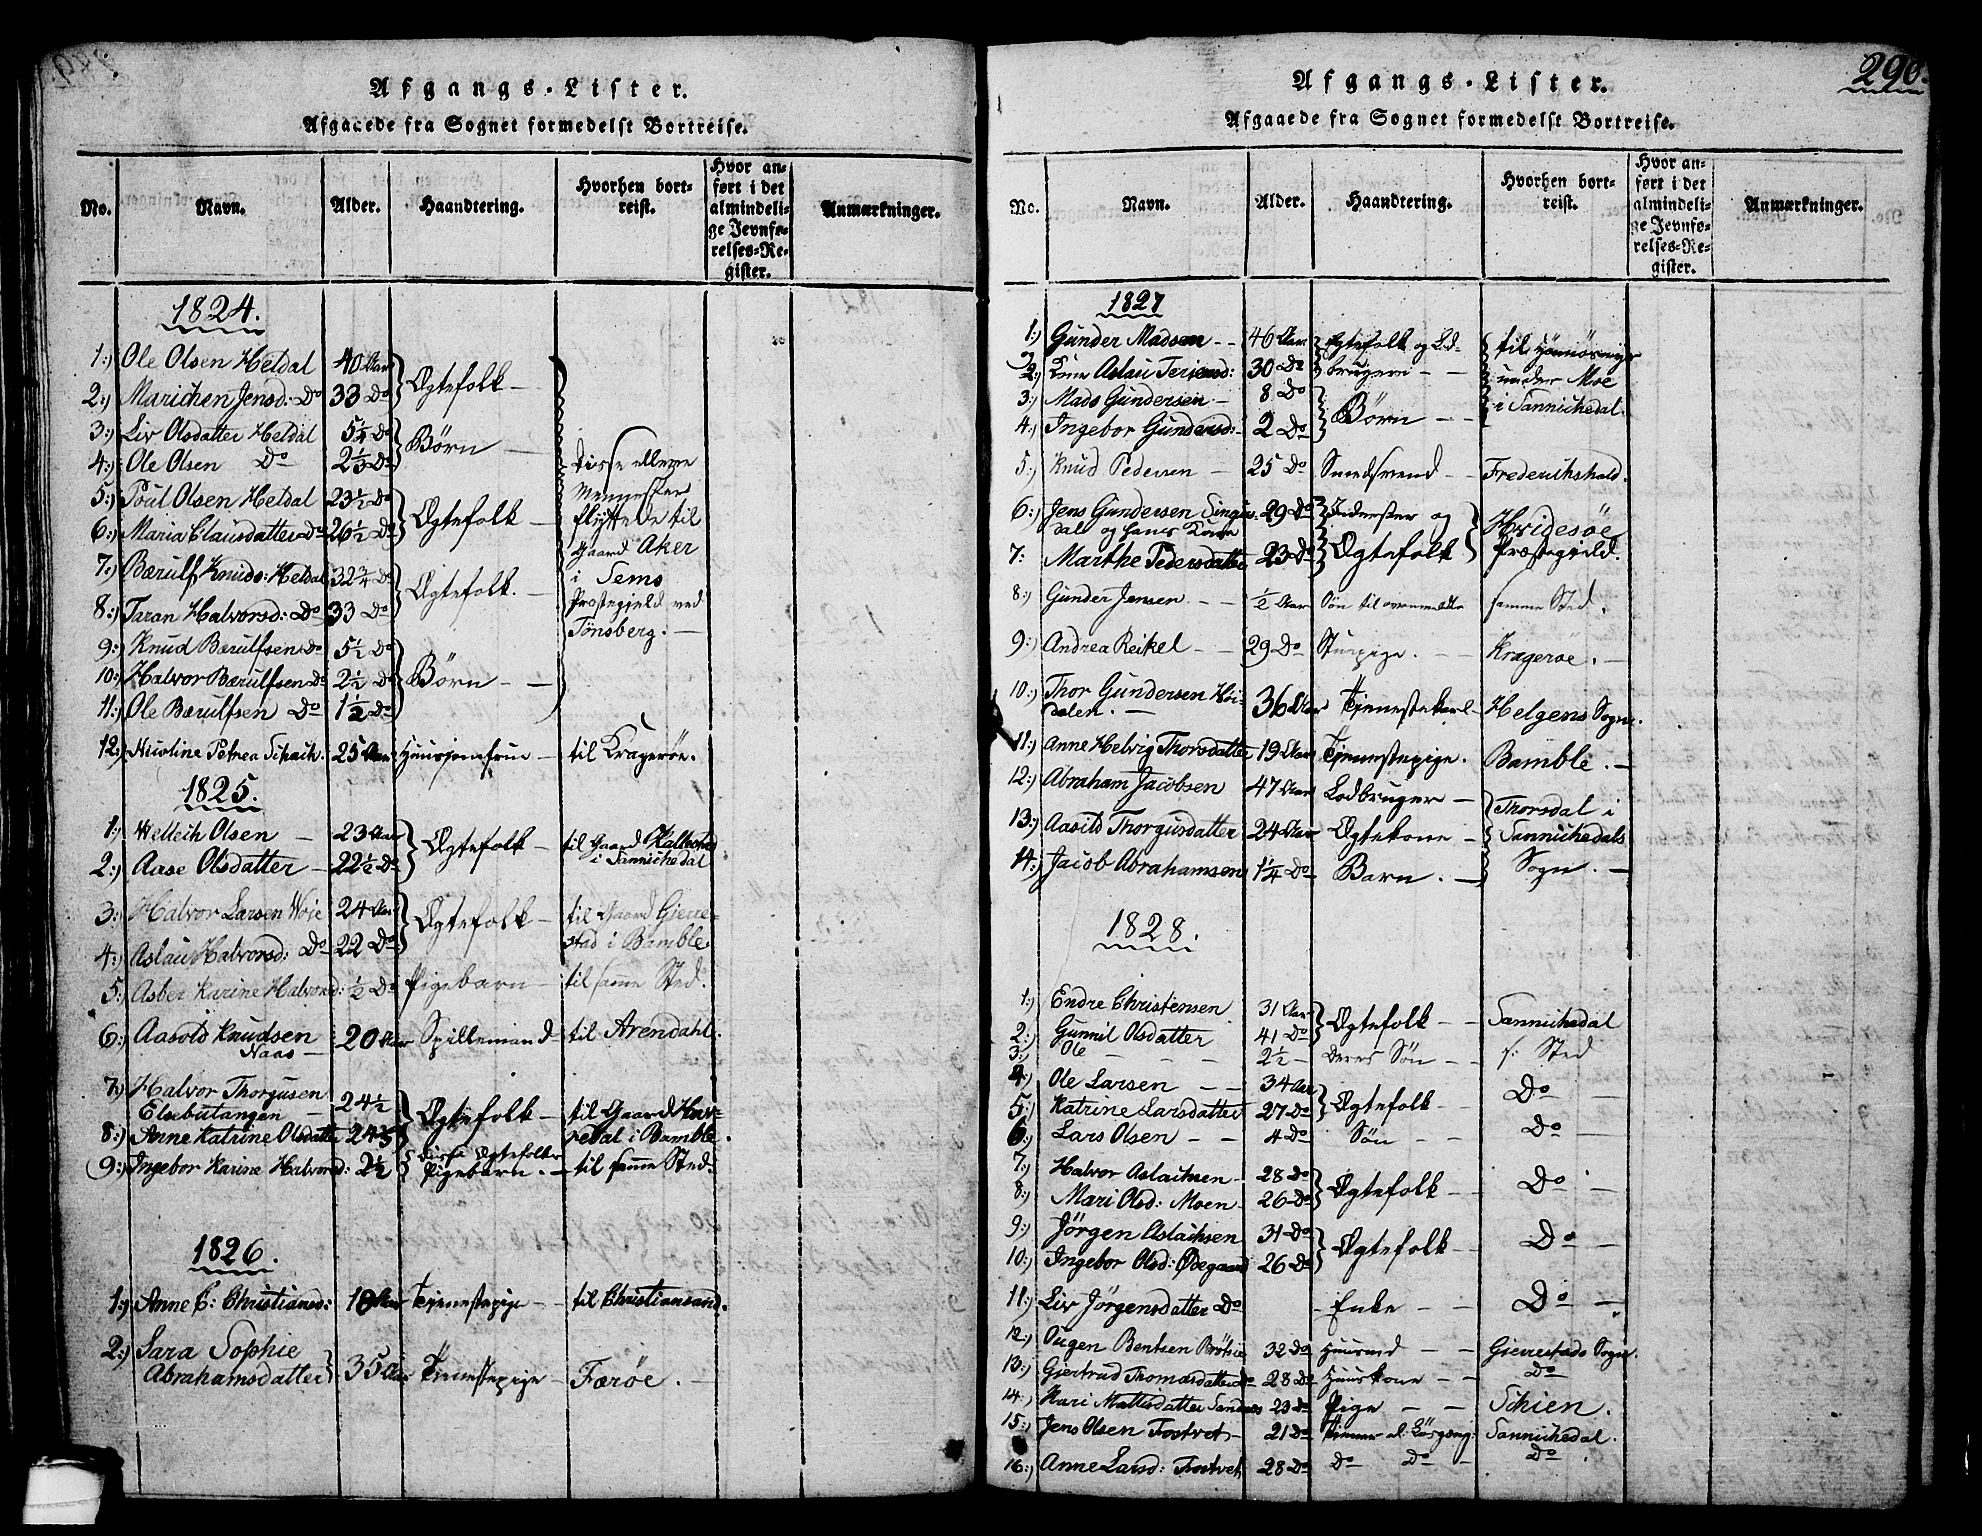 Afgangs-Lister.
Afgaaede fra Sognet formedelst Bortreise.
No. Navn. Alder. Haandtering. Hvorhen bortreist. Hvor anført i det almindelige Jevnførelses-Register. Anmærkninger.
1824.
1:) Ole Olsen Heldal 40 Aar Ægtefolk
2:) Marichen Jensd: Do 33 Do
3:) Liv Olsdatter Heldal 5¼ Do Børn
4:) Ole Olsen Do 2⅓ Do
5:) Poul Olsen Heldal 23½ Do Ægtefolk
6:) Maria Clausdatter Do 26½ Do
7:) Bærulf Knuds: Heldal 32¾ Do Ægtefolk.
8:) Taran Halvorsd: Do 33 Do
9:) Knud Bærulfsen Do 5½ Do
10:) Halvor Bærulfsen Do 2½ Do Børn
11:) Ole Bærulfsen Do 1½ Do
Disse elleve
Mennesker
flyttede til
Gaard Aker
i Sems
Præstegjeld ved
Tønsberg.
12:) Nicoline Petrea Schach. 25 Aar Huusjomfrue til Kragerøe.
1825.
1:) Wetleih Olsen 23 Aar Ægtefolk til Gaard
2:) Aase Olsdatter 22½ Do i Sannichedal
3:) Halvor Larsen Woie 24 Aar Ægtefolk til Gaard Gierre-
4:) Aslau Halvorsd: Do 22 Do stad i Bamble
5:) Asber Karine Halvorsd: ½ Do Pigebarn til samme Sted.
6:) Aasold Knudsen 20 Aar Spillemand til Arendahl.
Naas
7:) Halvor Thorgusen
Elsebutangen 24½ Ægtefolk til Gaard Har-
8:) Anne Katrine Olsdatter redal i Bamble.
9:) Ingebor Karine Halvorsd: 2½ Disse Ægtefolks
Pigebarn. til samme Sted.
1826.
1:) Anne C: Christiansd: 18 Aar Tjenestepige til Christiansand.
2:) Sara Sophie
Abrahamsdatter 35 Aar Tjenestepige Færøe.
290.
Afgangs-Lister.
Afgaaede fra Sognet formedelst Bortreise.
No. Navn. Alder. Haandtering. Hvorhen bortreist. Hvor anført i det almindelige Jevnførelses-Register. Anmærkninger.
1827
1:) Gunder Madsen 46 Aar Ægtefolk og Lod- til
2:) Kone Aslau Terjesd: 30 Do brugere under Moe
3:) Mads Gundersen 8 Do Børn i Sannichedal.
4:) Ingebor Gundersd: 2 Do
5:) Knud Pedersen 25 Do Smedsvend Frederikshald.
6:) Jens Gundersen Singus- 29 Do Inderster og Hvidesøe
dal og hans Kone
7: Marthe Pedersdatter 23 Do Ægtefolk Præstegjeld.
8:) Gunder Jensen ½ Aar Søn til ovenmeldte samme Sted.
9:) Andrea Reikel 29 Do Stuepige. Kragerøe.
10:) Thor Gundersen Høi-
dalen. 36 Aar Tjenestekarl Helgens Sogn.
11:) Anne Helvig Thorsdatter 19 Aar Tjenestepige. Bamble.
12:) Abraham Jacobsen 47 Aar Lodbruger Thorsdal i
13:) Aasild Thorgusdatter 24 Aar Ægtekone Sannichedals
14:) Jacob Abrahamsen 1¼ Do Barn. Sogn.
1828.
1:) Endre Christensen 31 Aar Ægtefolk Sannichedal
2:) Gunnil Olsdatter 41 Do
3:) Ole 2½ Deres Søn s: Sted
4:) Ole Larsen 34 Aar Ægtefolk Do
5:) Katrine Larsdatter 27 Do
6:) Lars Olsen 4 Do Søn Do
7:) Halvor Aslachsen 28 Do Ægtefolk Do
8:) Mari Olsd: Moen 26 Do
9:) Jörgen Aslachsen 31 Do Ægtefolk Do
10:) Ingebor Olsd: Ødegaard 26 Do
11:) Liv Jörgensdatter Do Enke Do
12:) Ougen Bentsen 32 Do Huusmd Gierrestads Sogn.
13:) Giertrud Thomasdatter Do 28 Do Huuskone Do
14:) Kari Mattisdatter Sandnes 23 Do Pige Schien.
15:) Jens Olsen Tostvet 21 Do Sannichedal.
16:) Anne Larsd: Tostvet 28 Do Do Do Do